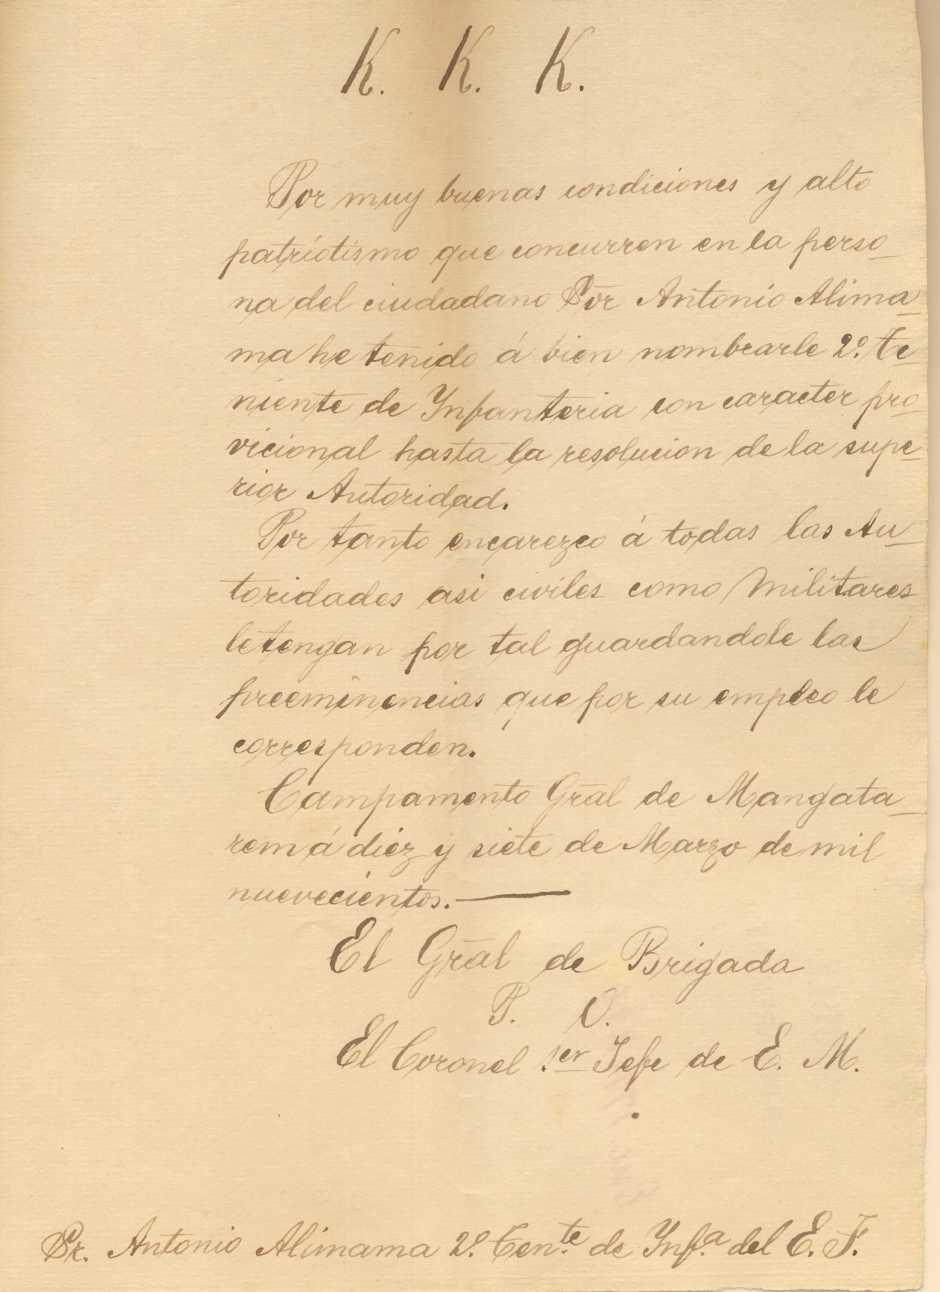 K. K. K.
Por muy buenas condiciones y alto
patriotismo que concurren en la perso_
na del ciudadano Sor Antonio Alima_
ma he tenido á bien nombrarle 2º. Te_
niente de Ynfanteria con caracter pro_
vicional hasta la resolucion de la supe_
rior Autoridad.
Por tanto encarezco á todas las Au_
toridades asi civiles como Militares
le tengan por tal guardandole las
preeminencias que por su empleo le
corresponden.
Campamento Gral de Mangata_
rem á diez y siete de Marzo de mil
nuevecientos.
El Gral de Brigada
P. O.
El Coronel 1er Jefe de E. M.
Sr. Antonio Alimama 2º. Tente. de Ynfa. del E. F.